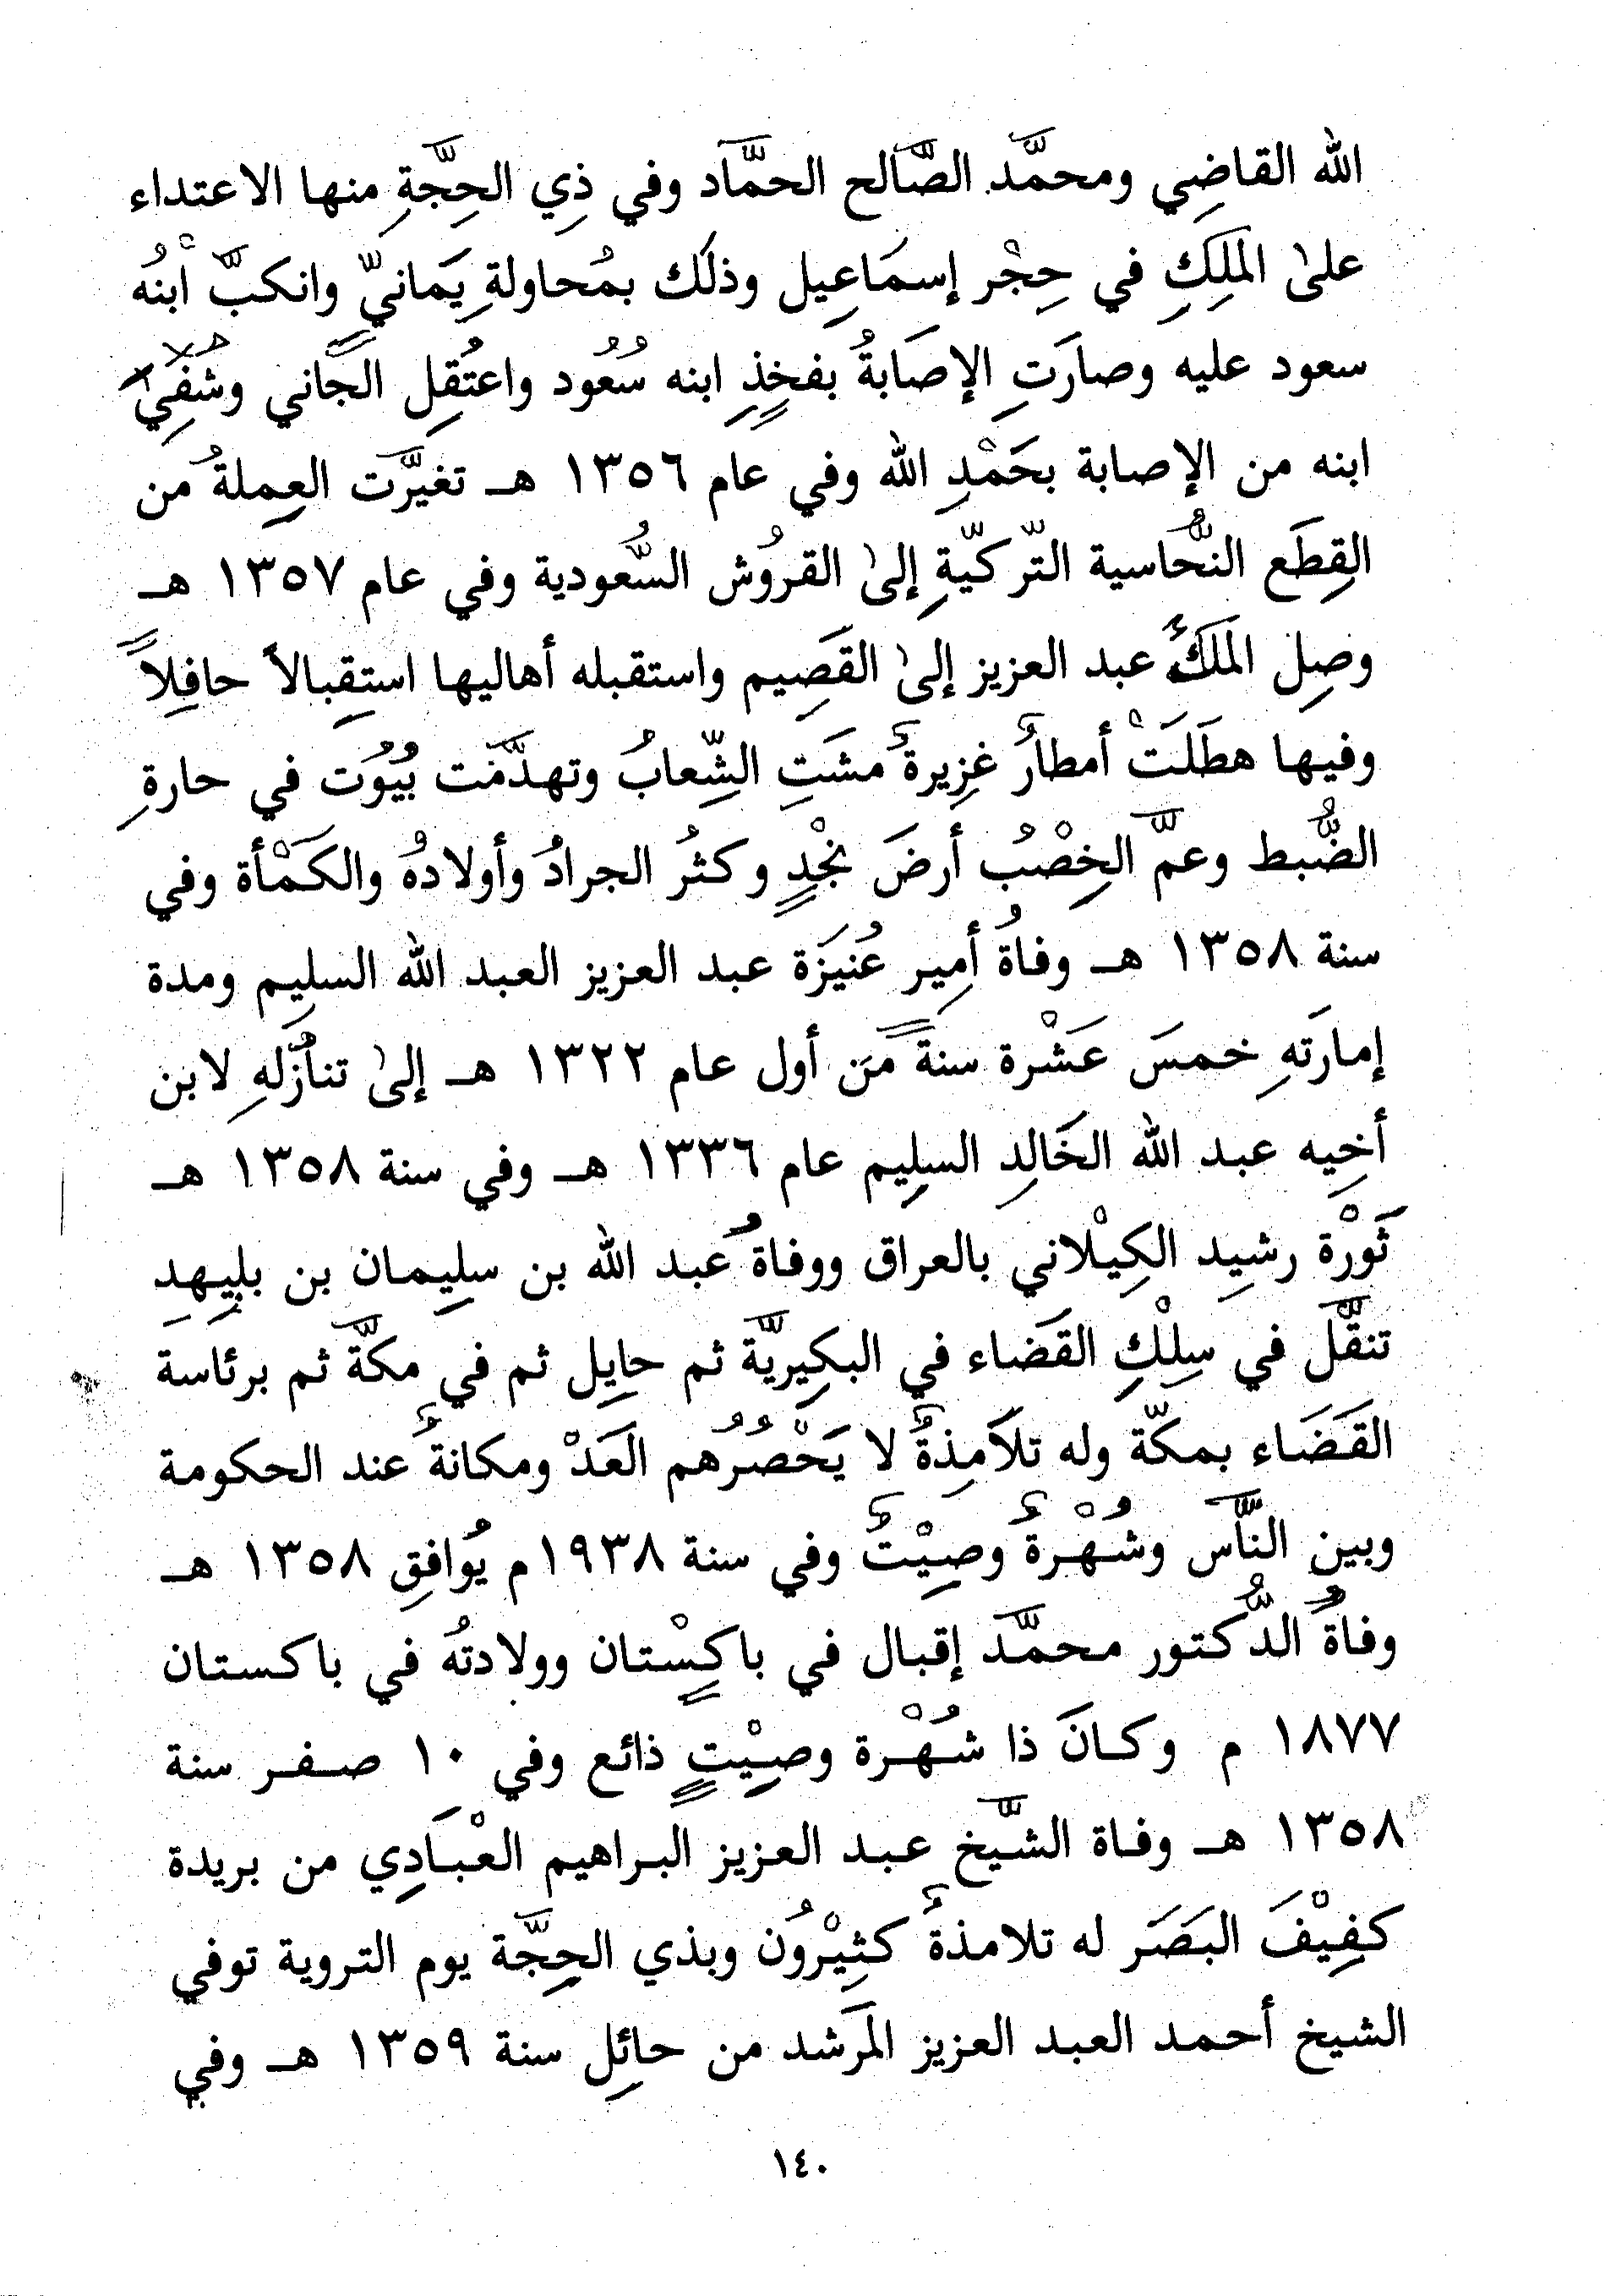 الله القاضِي ومحمَّد الصَّالح الحمَّاد وفي ذِي الحِجَّةِ منها الاعتداء
علىٰ المَلِكِ في حِجْر إسمَاعِيل وذلَك بمُحاولةِ يَمانيٍّ وانكبَّ ابْنُه
سعود عليه وصارَتِ الإصَابةُ بفخِذِ ابنه سُعُود واعتُقِل الجَاني وشُفِيَ
ابنه من الإصابة بحَمْدِ الله وفي عام ١٣٥٦ هـ تغيَّرَت العِملةُ من
القِطَع النُّحاسية التّركيّةِ إلىٰ القرُوش السُّعودية وفي عام ١٣٥٧ هـ
وصِل المَلَكُ عبد العزيز إلىٰ القَصِيم واستقبله أهاليها استِقبالاً حافِلاً
وفيها هطَلَتْ أمطارٌ غزِيرةٌ مشَتِ الشِّعابُ وتهدَّمَت بُيُوت في حارةِ
الضُّبط وعمَّ الخِصْبُ أرضَ نجْدٍ وكثرُ الجرادُ وأولادهُ والكَمْأة وفي
سنة ١٣٥٨ هـ وفاةُ أمِير عُنيَزَة عبد العزيز العبد الله السلِيم ومدة
إمارَتهِ خمسَ عَشْرة سنةً مَن أول عام ١٣٢٢ هـ إلىٰ تنازُلَهِ لابن
أخِيه عبد الله الخَالِدِ السلِيم عام ١٣٣٦ هـ وفي سنة ١٣٥٨ هـ
ثَوْرة رشيِد الكِيْلاني بالعراق ووفاةُ عبد الله بن سلِيمان بن بليِهِد
تنقَّل في سِلْكِ القَضاء في البكِيريَّة ثم حاِيل ثم في مكَّة ثم برئاسة
القَضَاء بمكّة وله تلاَمِذةٌ لا يَحْصُرُهم العَدْ ومكانةٌ عند الحكومة
وبين النَّاس وشُهْرةٌ وصِيْتٌ وفي سنة ١٩٣٨م يُوافِق ١٣٥٨ هـ
وفاةُ الدُّكتور محمَّد إقبال في باكِسْتان وولادتهُ في باكستان
١٨٧٧ م وكانَ ذا شُهْرة وصِيْتٍ ذائع وفي ١٠ صفر سنة
١٣٥٨ هـ وفاة الشَّيخ عبد العزيز البراهيم العْبَادِي من بريدة
كفِيْفَ البَصَر له تلامذةٌ كثِيْرُون وبذي الحِجَّة يوم التروية توفي
الشيخ أحمد العبد العزيز المَرشد من حائِل سنة ١٣٥٩ هـ وفي
١٤٠